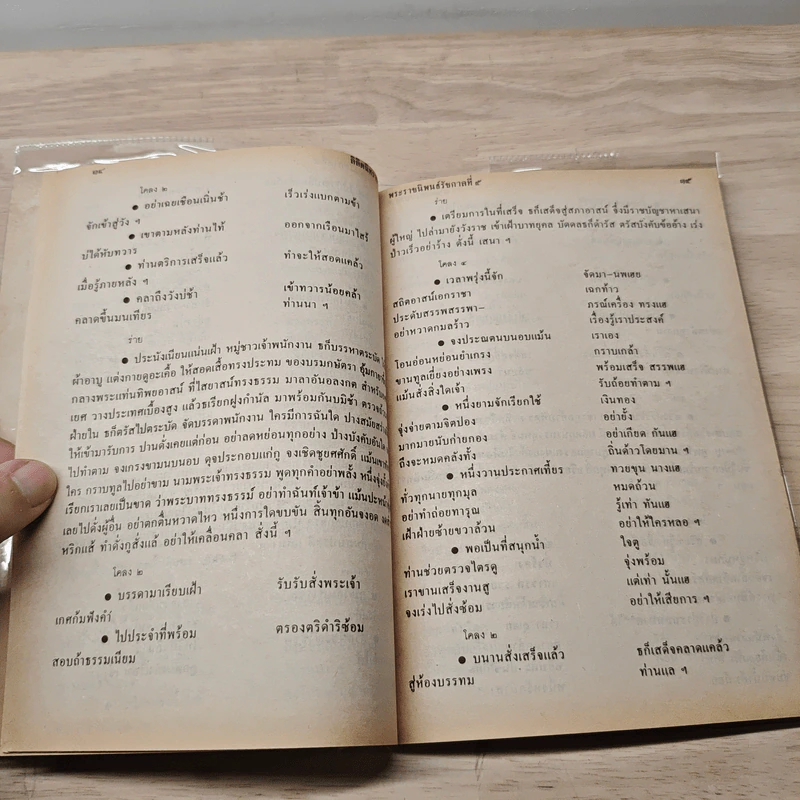 ๗๔
โคลง ๒
● อย่าเฉยเชือนเนิ่นช้า เร็วเร่งแบกตามข้า
จักเข้าสู่วัง ฯ
● เขาตามหลังท่านไท้ ออกจากเรือนมาใสร้
บ่ได้หับทวาร
● ท่านตริการเสร็จแล้ว ทำจะให้สอดแคล้ว
เมื่อรู้ภายหลัง ฯ
● คลาถึงวังบ่ช้า เข้าทวารน้อยคล้า
คลาดขึ้นมนเทียร ท่านนา ฯ
ร่าย
● ประนังเนียนแน่นเฝ้า หมู่ชาวเจ้าพนักงาน ธก็บรรหาตระบัด
ผ้าอาบู แต่งกายดูอะเคื้อ ให้สอดเสื้อทรงประทม ของบรมกษัตรา
กลางพระแท่นทิพยอาสน์ ที่ไสยาสน์ทรงธรรม มาลาอันอลงกต
เยศ วางประเทศเบื้องสูง แล้วธเรียกฝูงกำนัล มาพร้อมกันบมิช้า
ฝ่ายใน ธก็ตรัสไปตระบัด จัดบรรดาพนักงาน ใครมีการฉันใด
ให้เข้ามารับการ ปานดั่งเคยแต่ก่อน อย่าลดหย่อนทุกอย่าง ป่างบังคับอันใด
ไปทำตาม จงเกรงขามนบนอบ ดุจประกอบแก่กู จงเชิดชูยศศักดิ์
ใคร กราบทูลไปอย่าขาม นามพระเจ้าทรงธรรม พูดทุกคำอย่าพลั้ง
เรียกเราเลยเป็นขาด ว่าพระบาททรงธรรม์ อย่าทำฉันท์เจ้าข้า
เลยไปดั่งผู้อื่น อย่าตกตื่นหวาดไหว หนึ่งการใดขบขัน สิ้นทุกอันจงอด
หริกแส้ ทำดั่งกูสั่งแล้ อย่าให้เคลื่อนคลา สั่งนี้ ฯ
โคลง ๒
● บรรดามาเรียบเฝ้า รับรับสั่งพระเจ้า
เกศก้มพึงคำ
● ไปประจำที่พร้อม ตรองตริดำริซ้อม
สอบถ้าธรรมเนียม
พระราชนิพนธ์รัชกาลที่ ๕
๗๕
ร่าย
● เตรียมการในที่เสร็จ ธก็เสด็จสู่สภาอาสน์ จึ่งมีราชบัญชาหาเสนา
ผู้ใหญ่ ไปล่ามายังวังราช เข้าเฝ้าบาทยุคล บัดดลธก็ดำรัส ตรัสบังคับข้ออ้าง เร่ง
ป่าวเร็วอย่าร้าง ดั่งนี้ เสนา ฯ
โคลง ๔
● เวลาพรุ่งนี้จัก จัดมา-นพเฮย
สถิตอาสน์เอกราชา เฉกท้าว
ประดับสรรพสรรพา- ภรณ์เครื่อง ทรงแฮ
อย่าหวาดกมลร้าว เรื่องรู้เราประสงค์
● จงประณตนบนอบแม้น เราเอง
โอนอ่อนหย่อนยำเกรง กราบเกล้า
ขานทูลเยี่ยงอย่างเพรง พร้อมเสร็จ สรรพแฮ
แม้นสั่งสิ่งใดเจ้า รับถ้อยทำตาม ฯ
● หนึ่งยามจักเรียกใช้ เงินทอง
จุ่งจ่ายตามจิตปอง อย่ายั้ง
มากมายนับก่ายกอง อย่าเกียด กันแฮ
ถึงจะหมดคลังทั้ง ถิ่นด้าวโดยมาน ฯ
● หนึ่งวานประกาศเที้ยร ทวยขุน นางแฮ
ทั่วทุกนายทุกมุล หมดถ้วน
อย่าทำถ่อยทารุณ รู้เท่า ทันแฮ
เฝ้าฝ่ายซ้ายขวาล้วน อย่าให้ใครหลอ ฯ
● พอเป็นที่สนุกน้ำ ใจดู
ท่านช่วยตรวจไตรดู จุ่งพร้อม
เราขานเสร็จงานสู แต่เท่า นั้นแฮ
จงเร่งไปสั่งซ้อม อย่าให้เสียการ ฯ
โคลง ๒
● บนานสั่งเสร็จแล้ว ธก็เสด็จคลาดแคล้ว
สู่ห้องบรรทม ท่านแล ฯ